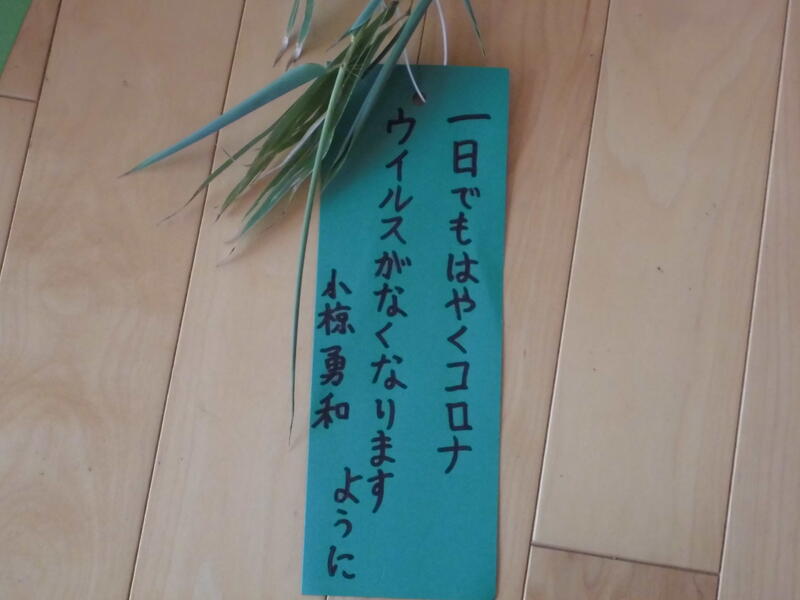 一日でもはやくコロナ
ウイルスがなくなります
ように
小椋勇和